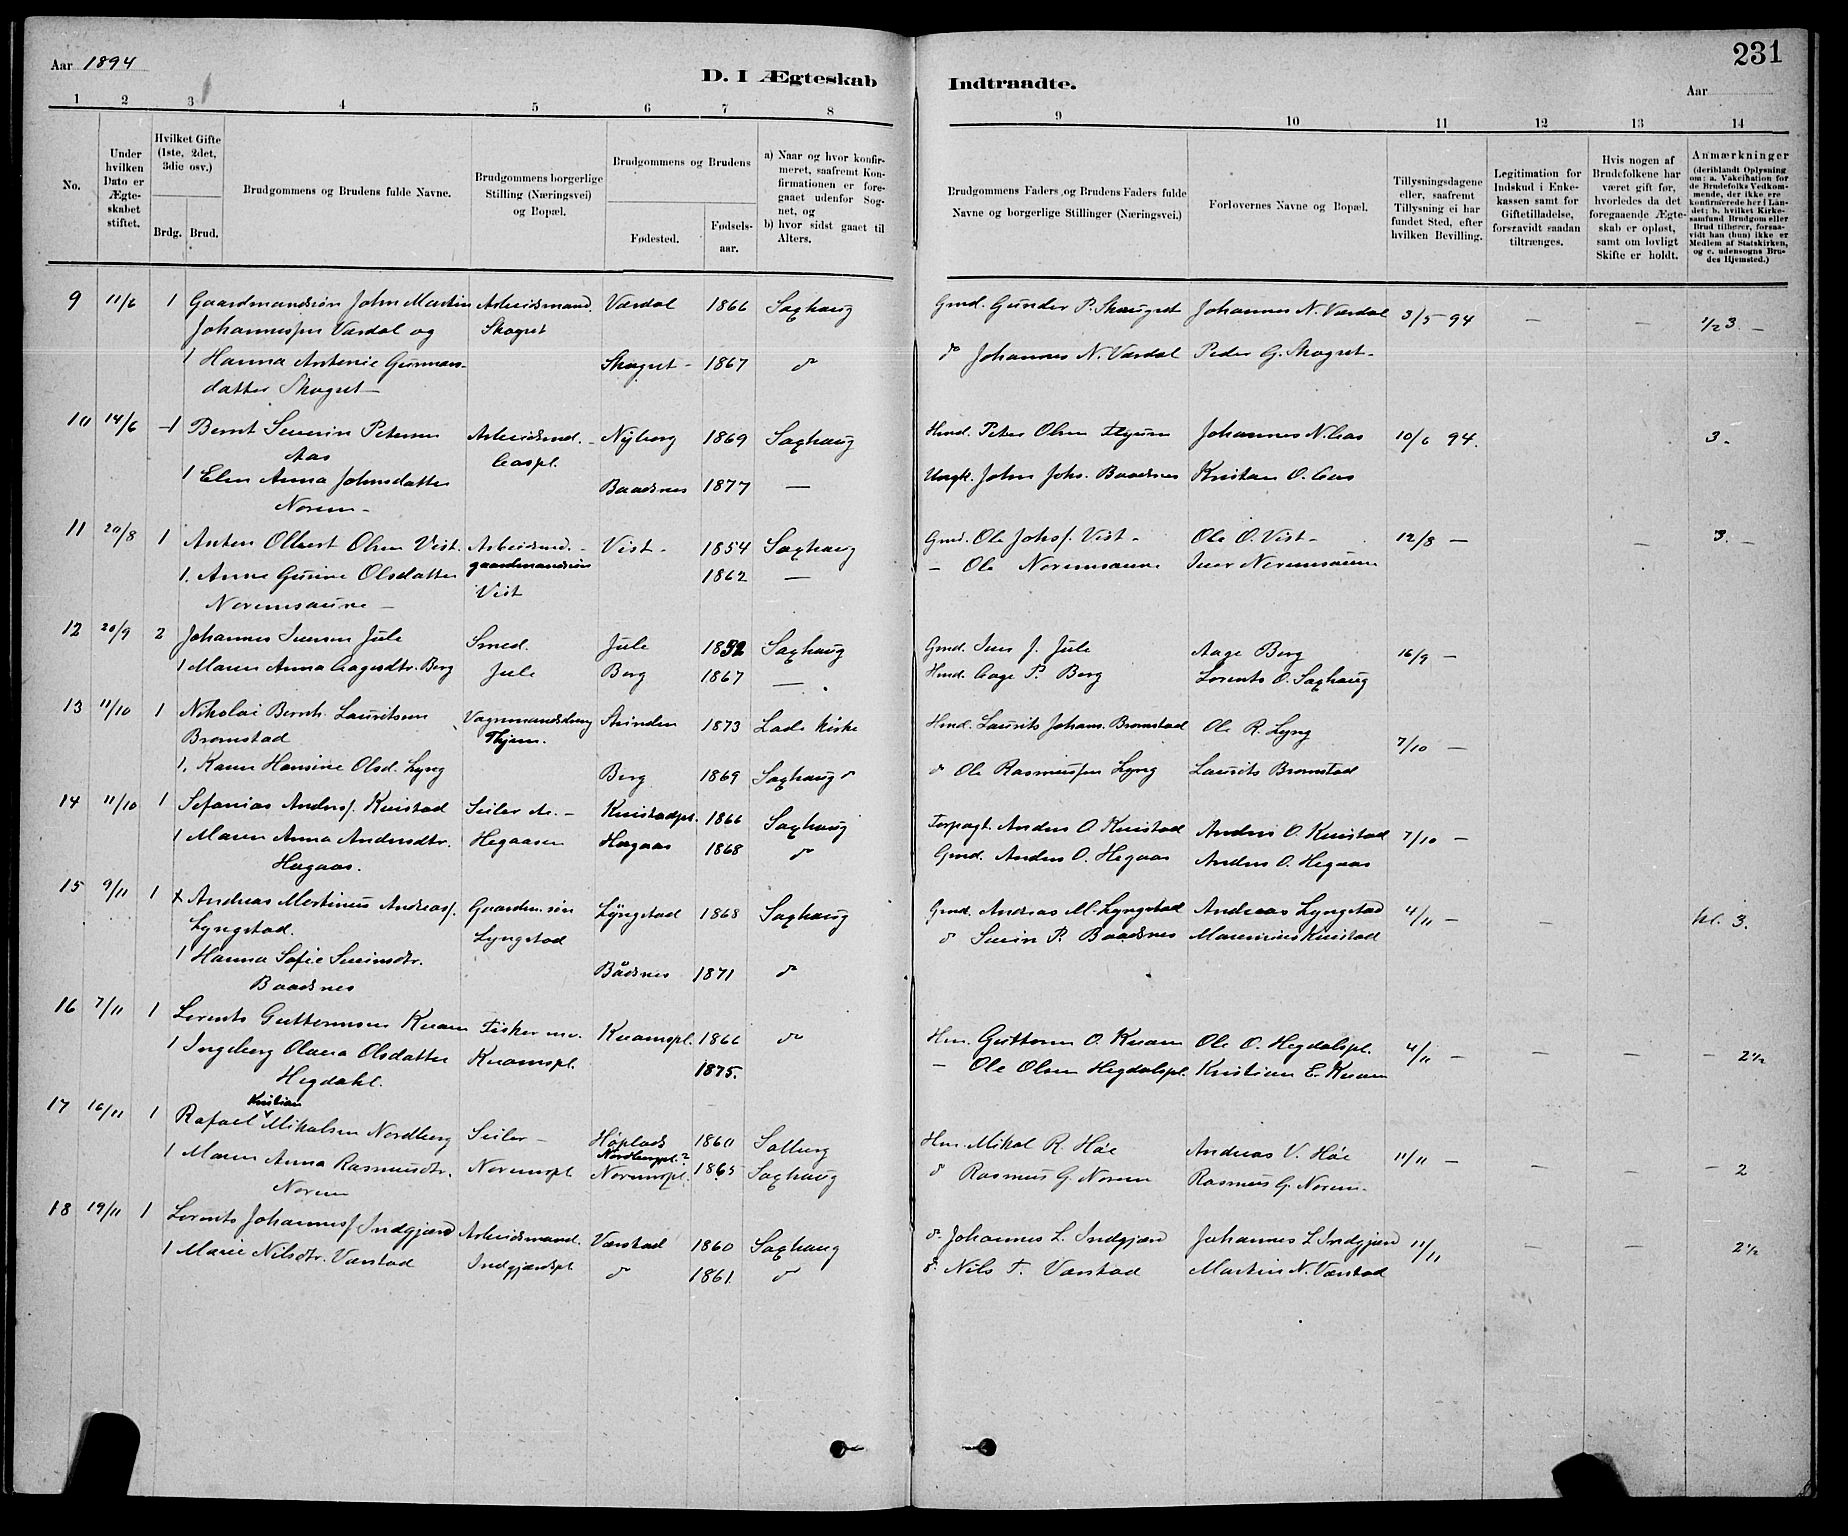 Aar 1894
D. I Ægteskab
Indtraadte.
231
Aar
1 2 3 4 5 6 7 8
9 10 11 12 13 14
No.
Under hvilken Dato er Ægteskabet stiftet.
Hvilket Gifte (1ste, 2det, 3die osv.)
Brdg. Brud.
Brudgommens og Brudens fulde Navne.
Brudgommens borgerlige Stilling (Næringsvei) og Bopæl.
Brudgommens og Brudens
Fødested.
Fødselsaar.
a) Naar og hvor konfirmeret, saafremt Konfirmationen er foregaaet udenfor Sognet, og
b) hvor sidst gaaet til Alters.
Brudgommens Faders og Brudens Faders fulde Navne og borgerlige Stillinger (Næringsvei.)
Forlovernes Navne og Bopæl.
Tillysningsdagene eller, saafremt Tillysning ei har fundet Sted, efter hvilken Bevilling.
Legitimation for Indskud i Enkekassen samt for Giftetilladelse, forsaavidt saadan tiltrænges.
Hvis nogen af Brudefolkene har været gift før, hvorledes da det foregaaende Ægteskab er opløst, samt om lovligt Skifte er holdt.
Anmærkninger (deriblandt Oplysning om: a. Vakcination for de Brudefolks Vedkommende, der ikke ere konfirmerede her i Landet; b. hvilket Kirkesamfund Brudgom eller Brud tilhører, forsaavidt han (hun) ikke er Medlem af Statskirken, og c. udensogns Brudes Hjemsted.)
9 11/6 1 Gaardmandsøn John Martin Arbeidsmand. Værdal 1866 Saxhaug Gmd. Gunder P. Skaugset Johannes N. Værdal 3/5 94 — — 1/2 3. —
Johannessen Værdal og Skogset
1 Hanna Antonie Gunnars- Skogset - 1867 do do Johannes N. Værdal Peder G. Skogset -
datter Skogset -
10 14/6 1 Bernt Severin Petersen Arbeidsmd. - Nyborg 1869 Saxhaug Hmd. Peter Olsen Johannes N. Aas 10/6 94. 3.
Aas Aaspl.
1 Elen Anna Johnsdatter Baadsnes 1877 — Ungk. John Johs. Baadsnes Kristian O. Aas
Norem -
11 20/8 1 Anton Olbert Olsen Vist. Arbeidsmd. - Vist - 1854 Saxhaug Gmd. Ole Johs. Vist - Ole O. Vist - 12/8 — — 3. —
gaardmandsøn
1. Anne Gurine Olsdatter 1862 — — Ole Noremsaune Iver Noremsaune
Noremsaune - Vist
12 20/9 2 Johannes Iversen Jule Smed. Jule 1852 Saxhaug Gmd. Iver J. Jule Aage Berg 16/9 —
1 Maren Anna Aagesdtr. Berg Jule Berg 1867 — Hmd. Aage P. Berg Lorents O. Saxhaug
13 11/10 1 Nikolai Bernh. Lauritsen Vognmandsdreng Strinden 1873 Lade Kirke Hmd. Laurits Johans. Bromstad Ole R. Lyng 7/10 —
Bromstad Thjem.
1. Karen Hansine Olsd. Lyng Berg 1869 Saxhaug do Ole Rasmussen Lyng Laurits Bromstad
14 11/10 1 Sefanias Anders. Kvistad Seiler Kvistadpl. 1866 Saxhaug Forpagt. Anders O. Kvistad Anders O. Kvistad 7/10 —
1 Maren Anna Andersdtr. Hegaasen Hegaas 1868 do Gmd. Anders O. Hegaas Anders O. Hegaas
Hegaas.
15 9/11 1 + Andreas Martinus Andreas. Gaardm.søn Lyngstad 1868 Saxhaug Gmd. Andreas M. Lyngstad Andreas Lyngstad 4/11 — — kl. 3.
Lyngstad. Lyngstad do Sverin P. Baadsnes Marennius Kvistad
1 Hanna Sofie Severinsdtr. Bådsnes 1871 do
Baadsnes
16 7/11 1 Lorents Guttormsen Kvam Fisker Kvamspl. 1866 do Hm. Guttorm O. Kvam Ole O. Hegdalspl. 4/11 — — — — 2 1/2
1 Ingeborg Olava Olsdatter Kvamspl. 1875. — Ole Olsen Hegdalspl. Kristian E. Kvam
Hegdahl.
Kristian
17 16/11 1 Rafael Mikalsen Nordberg Seiler - Høplads 1860 Salberg Hm. Mikal R. Høe Andreas V. Høe 11/11 — — — — 2
Nordbergpl.?
1 Maren Anna Rasmusdtr. Noremspl Noremspl. 1865 Saxhaug do Rasmus G. Norem Rasmus G. Norem.
Norem
18 19/11 1 Lorents Johannes. Indgjærd Arbeidsmand. Værstad 1860 Saxhaug do. Johannes L. Indgjærd Johannes L Indgjærd 11/11 — — 2 1/2
1 Marie Nilsdtr. Værstad Indgjærdspl do 1861. do do. Nils T. Værstad Martin N. Værstad